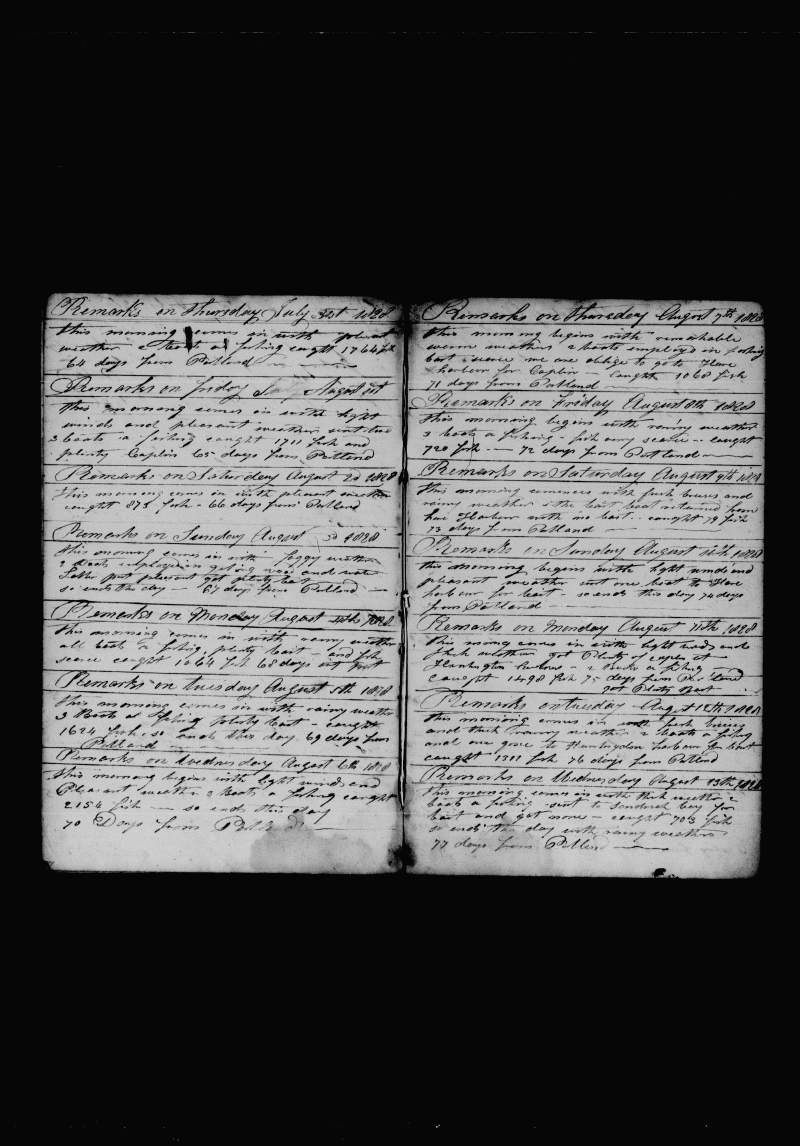 Remarks on Thursday July 31st 1828
this morning comes in with pleasent
weather 2 boats a fishing caught 1764 fish
64 days from Portland
Remarks on friday August 1st
this morning comes in with light
winds and pleasant weather sent two
3 boats a fishing caught 1711 fish and
plenty Caplin 65 days from Portland
Remarks on Saturday August 2d 1828
this morning comes in with plesent weather
caught 872 fish - 66 days from Portland
Remarks on Sunday August 3d 1828
this morning comes in with foggy weather
2 boats employed in geting wood and water
Latter part plesent got plenty bait
so ends the day - 67 days from Portland
Remarks on Monday August 4th 1828
this morning comes in with rainy weather
all boats a fishing, plenty bait - and fish
scarce caught 1064 fish 68 days out port
Remarks on tuesday August 5th 1828
this morning comes in with rainy weather
3 Boats a fishing plenty bait - caught
1624 fish so ends this day 69 days from
Portland
Remarks on Wednesday August 6th 1828
this morning begins with light winds and
Pleasant weather 2 boats a fishing caught
2154 fish - so ends this day
70 Days from
Remarks on Thursday August 7th 1828
this morning begins with remarkable
warm weather 2 boats employed in fishing
bait scarce we are oblige to go to Hare
harbour for Caplin - caught 1068 fish
71 days from Portland
Remarks on Friday August 8th 1828
this morning begins with rainy weather
3 boats a fishing - fish very scarce - caught
720 fish - 72 days from Portland
Remarks on Saturday August 9th 1828
this morning comences with fresh breses and
rainy weather the bait boat returned from
hare Harbour with no bait - caught 79 fish
73 days from Portland
Remarks on Sunday August 10th 1828
this morning begins with light winds and
pleasant weather sent one boat to Hare
harbour for bait - so ends this day 74 days
from Portland
Remarks on Monday August 11th 1828
this morng comes in with light winds and
weather got Plenty of caplin at
harbour - 2 boats a fishing
caught 1498 fish 75 days from Portland
got Plenty Bait
Remarks on tuesday August 12th 1828
this morning comes in with fresh brises
and thick rainy weather 2 boats a fishing
and one gone to Huntingdon harbour for bait
caught 1311 fish 76 days from Portland
Remarks on Wednesday August 13th 1828
this morning comes in with thick weather 2
boats a fishing sent to Sandwich bay for
bait and got none - caught 703 fish
so ends this day with rainy weather
77 days from Portland